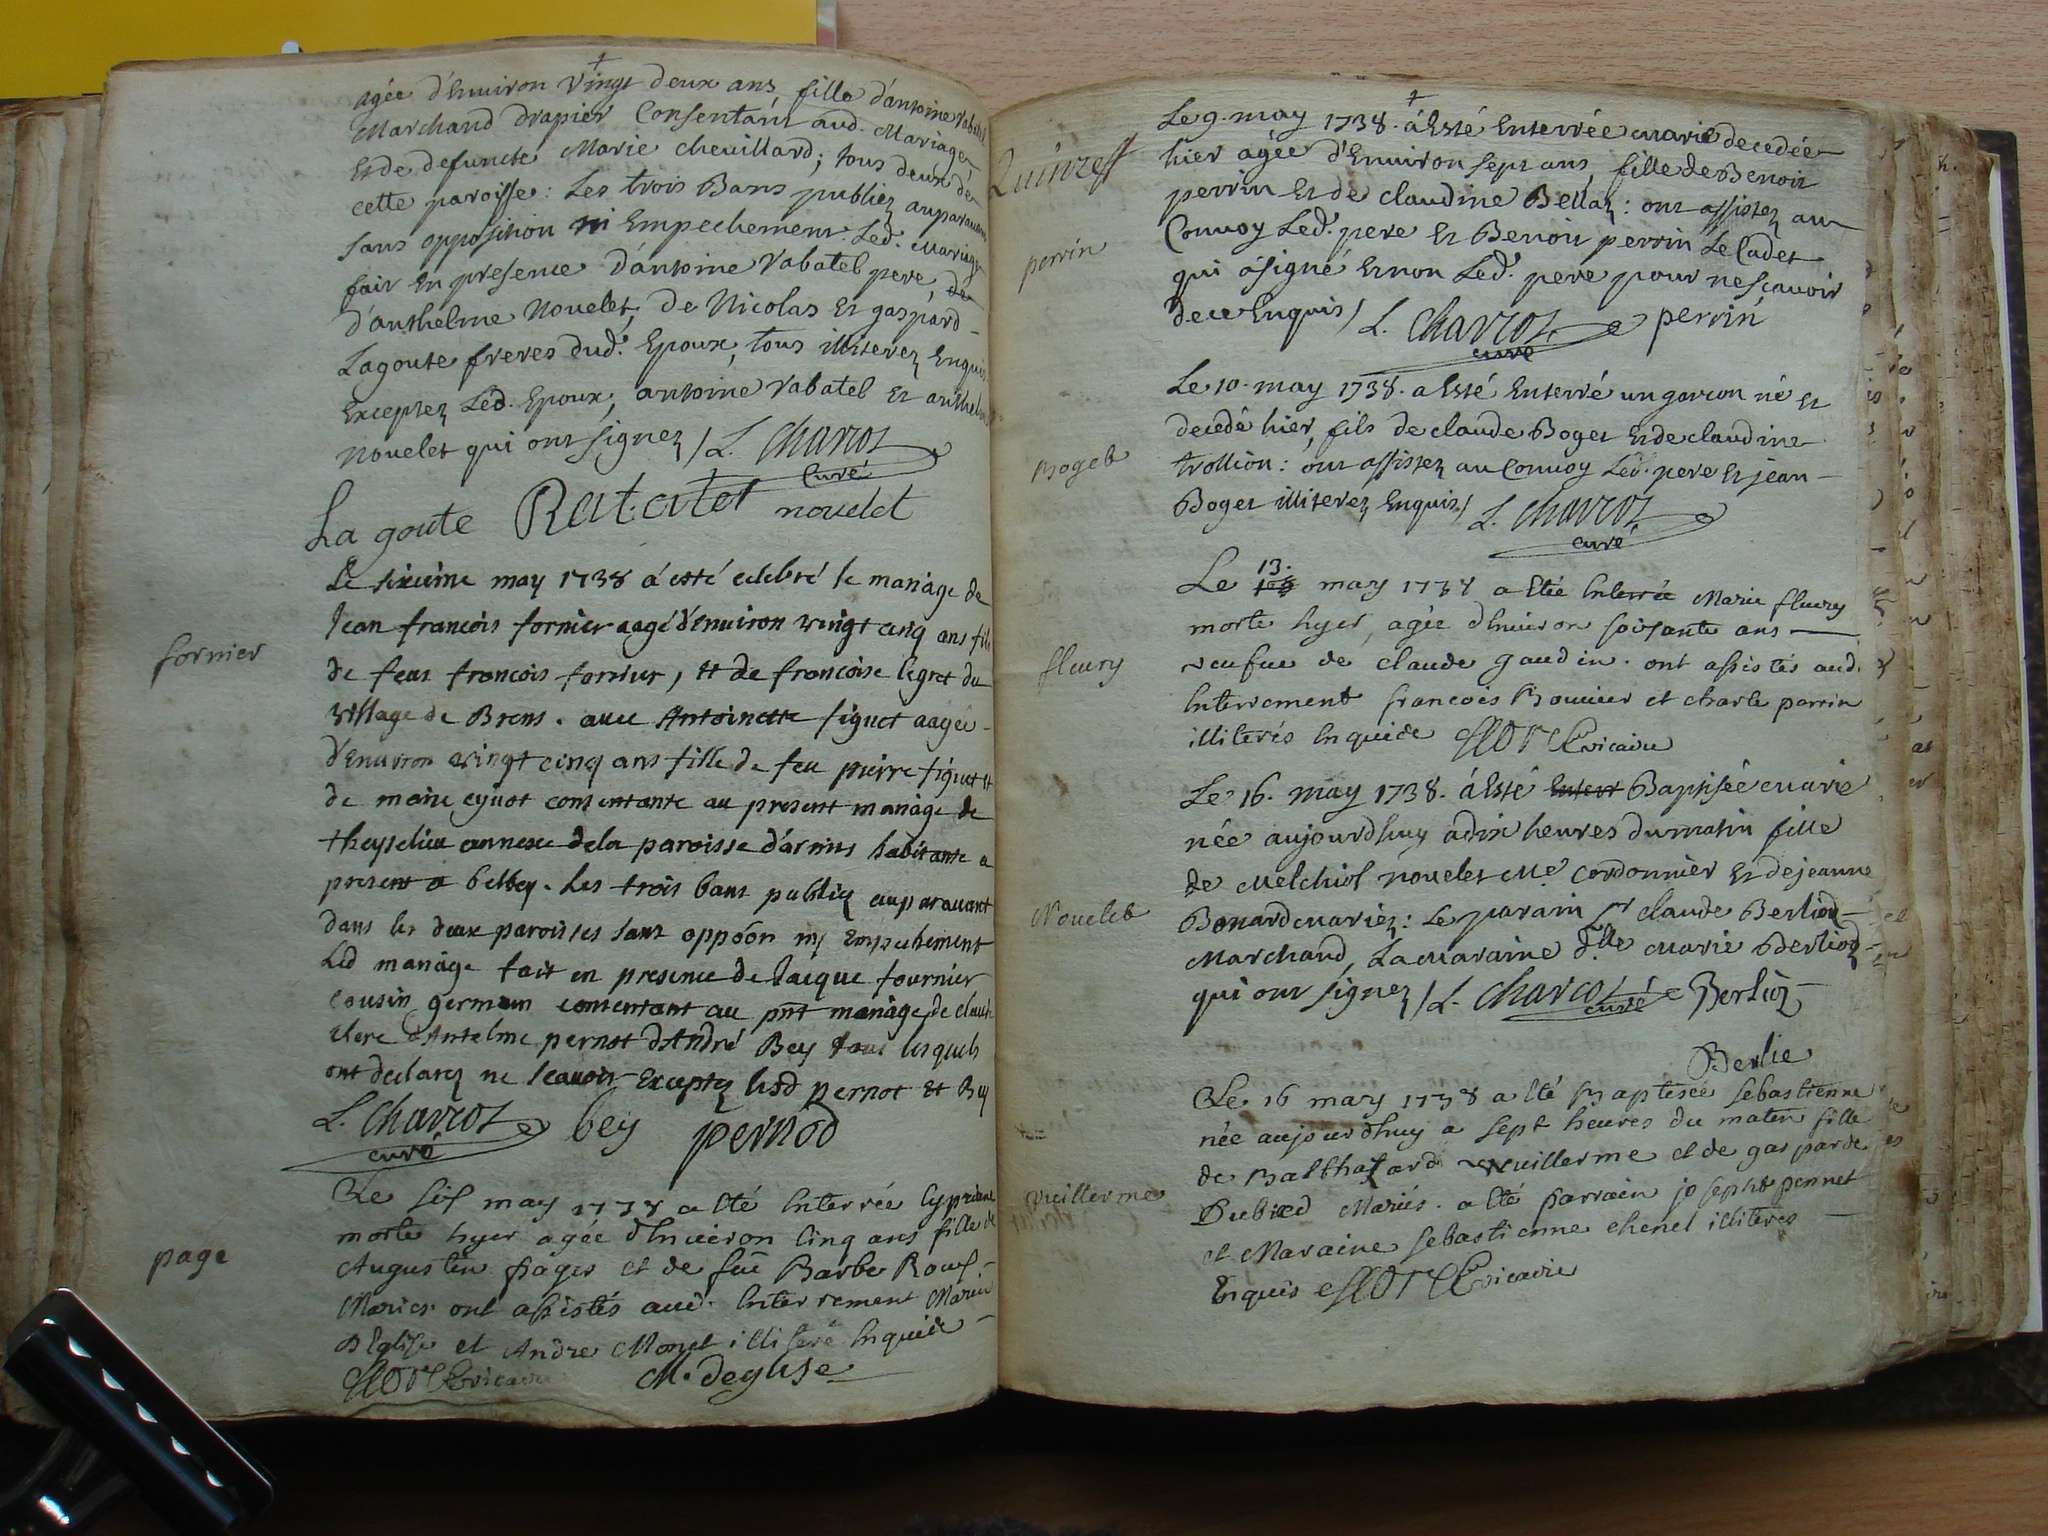 agée d'Environ vingt deux ans fille d'antoine Rabatel
Marchand drapier Consentant aud. Mariage
Et de defuncte Marie chevillard; tous deux de
cette paroisse: Les trois Bans publiez auparavant
sans opposition ni Empechement. Led. Mariage
fait En presence d'antoine Rabatel pere, de
d'anthelme Nouelet, de Nicolas Et gaspard
Lagoute freres dud. Epoux, tous illiterez Enquis
Exceptez Led. Epoux, antoine Rabatel Et anthelme
Nouelet qui ont signez / L. Charcot
Curé
La goute Rabatel nouelet
fornier
Le sixieme may 1738 á esté celebré le mariage de
Jean francois fornier aagé d'Environ vingt cinq ans fils
de feu francois fornier, et de francoise legret du
village de Brens. avec Antoinette figuet aagée
d'Environ vingt cinq ans fille de feu pierre figuet et
de marie eyvot consentante au present mariage de
theyselieu annexe de la paroisse d'arnits habitante a
present a belley. Les trois bans publiez auparavant
dans les deux paroisses sans oppóón ny Empechement
Led mariage fait en presence de Jacque fournier
cousin germain consentant au pnt mariage, de claude
clere d'Antelme pernot d'André Bey tous lesquels
ont declarez ne scavoir Exceptez lesd pernot Et Bey
L. Charcot bey pernod
curé
page
Le six may 1738 a eté Enterrée Cypriane
morte hyer agée d'Enuiron Cinq ans fille de
Augustin pages et de feüe Barbe Roux
Mariés. ont assistés aud. Enterrement Marin
D'Eglise et Andre Monet illiteré Enquide
vicaire M. deglise
Quinze ff
perrin
Le 9. may 1738. á Esté Enterrée Marie decedée
hier agée d'Environ sept ans, fille de Benoit
perrin Et de claudine Bellaz: ont assistez au
Convoy Led. pere Et Benoit perrin Le Cadet
qui á signé Et non Led. pere pour ne scavoir
de ce Enquis / L. Charcot perrin
curé
Boget
Le 10. may 1738. a Esté Enterré un garcon né Et
decedé hier, fils de claude Boget Et de claudine
trollion: ont assistez au Convoy Led. pere Et jean
Boget illiterez Enquis / L. Charcot
curé
fleury
13.
Le may 1738 a eté Enterrée Marie fleury
morte hyer, agée d'Enuiron soixante ans
veufue de claude gaudin. ont assistés aud.
Enterrement francois Bouvier et charle perrin
illiterés Enquide vicaire
Nouelet
Le 16. may 1738. á Esté Enterr Baptisée Marie
née aujourdhuy a dix heures du matin fille
de Melchiol nouelet Me. Cordonnier Et de jeanne
Bonard Mariez: Le parain Sr. claude Berlioz
Marchand, La Maraine d.lle Marie Berlioz
qui ont signez / L. Charcot Berlioz
curé
Berlie
Vüillerme
Le 16 may 1738 a eté Baptisée sebastienne
née aujourdhuy a sept heures du matin fille
de Balthazard Wuillerme et de gasparde
Dubied Mariés. a eté parrain joseph pennet
et Maraine sebastienne chenel illiteres
Enquis vicaire